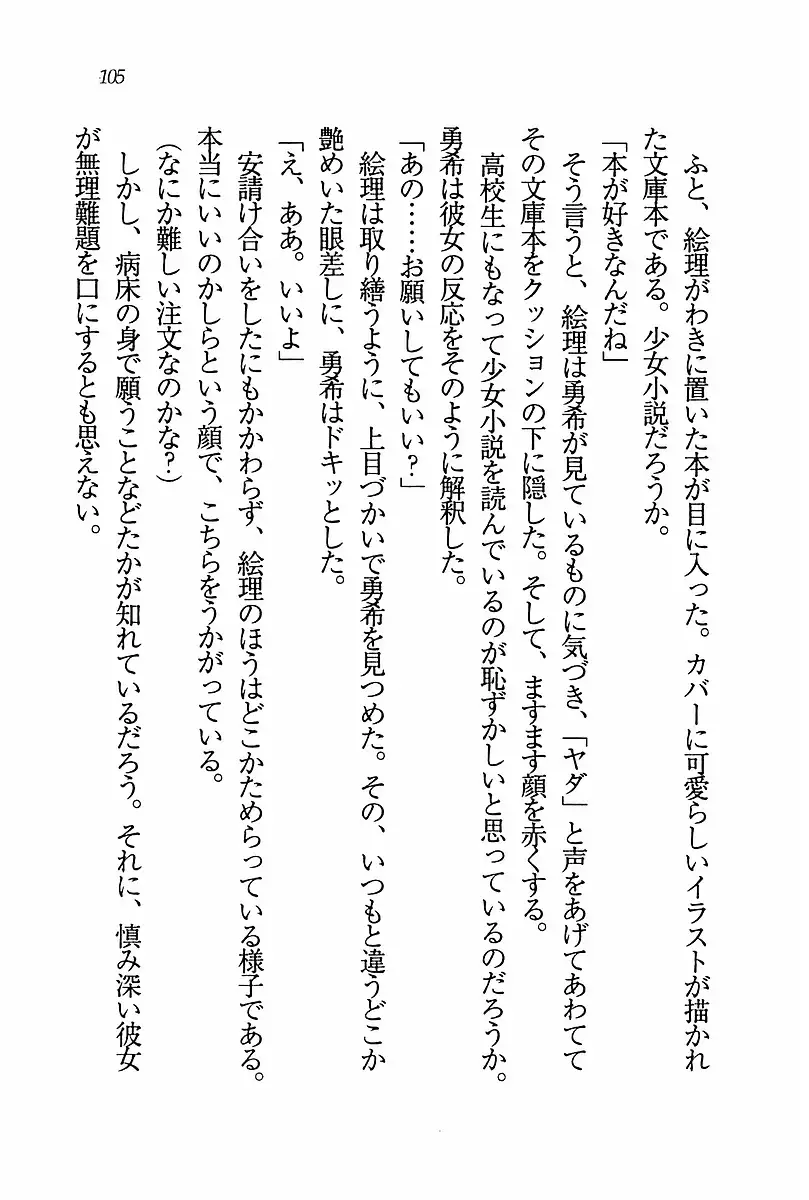 105
ふと、絵理がわきに置いた本が目に入った。カバーに可愛らしいイラストが描かれ
た文庫本である。少女小説だろうか。
「本が好きなんだね」
そう言うと、絵理は勇希が見ているものに気づき、「ヤダ」と声をあげてあわてて
その文庫本をクッションの下に隠した。そして、ますます顔を赤くする。
高校生にもなって少女小説を読んでいるのが恥ずかしいと思っているのだろうか。
勇希は彼女の反応をそのように解釈した。
「あの……お願いしてもいい？」
絵理は取り繕うように、上目づかいで勇希を見つめた。その、いつもと違うどこか
艶めいた眼差しに、勇希はドキッとした。
「え、ああ。いいよ」
安請け合いをしたにもかかわらず、絵理のほうはどこかためらっている様子である。
本当にいいのかしらという顔で、こちらをうかがっている。
（なにか難しい注文なのかな？）
しかし、病床の身で願うことなどたかが知れているだろう。それに、慎み深い彼女
が無理難題を口にするとも思えない。